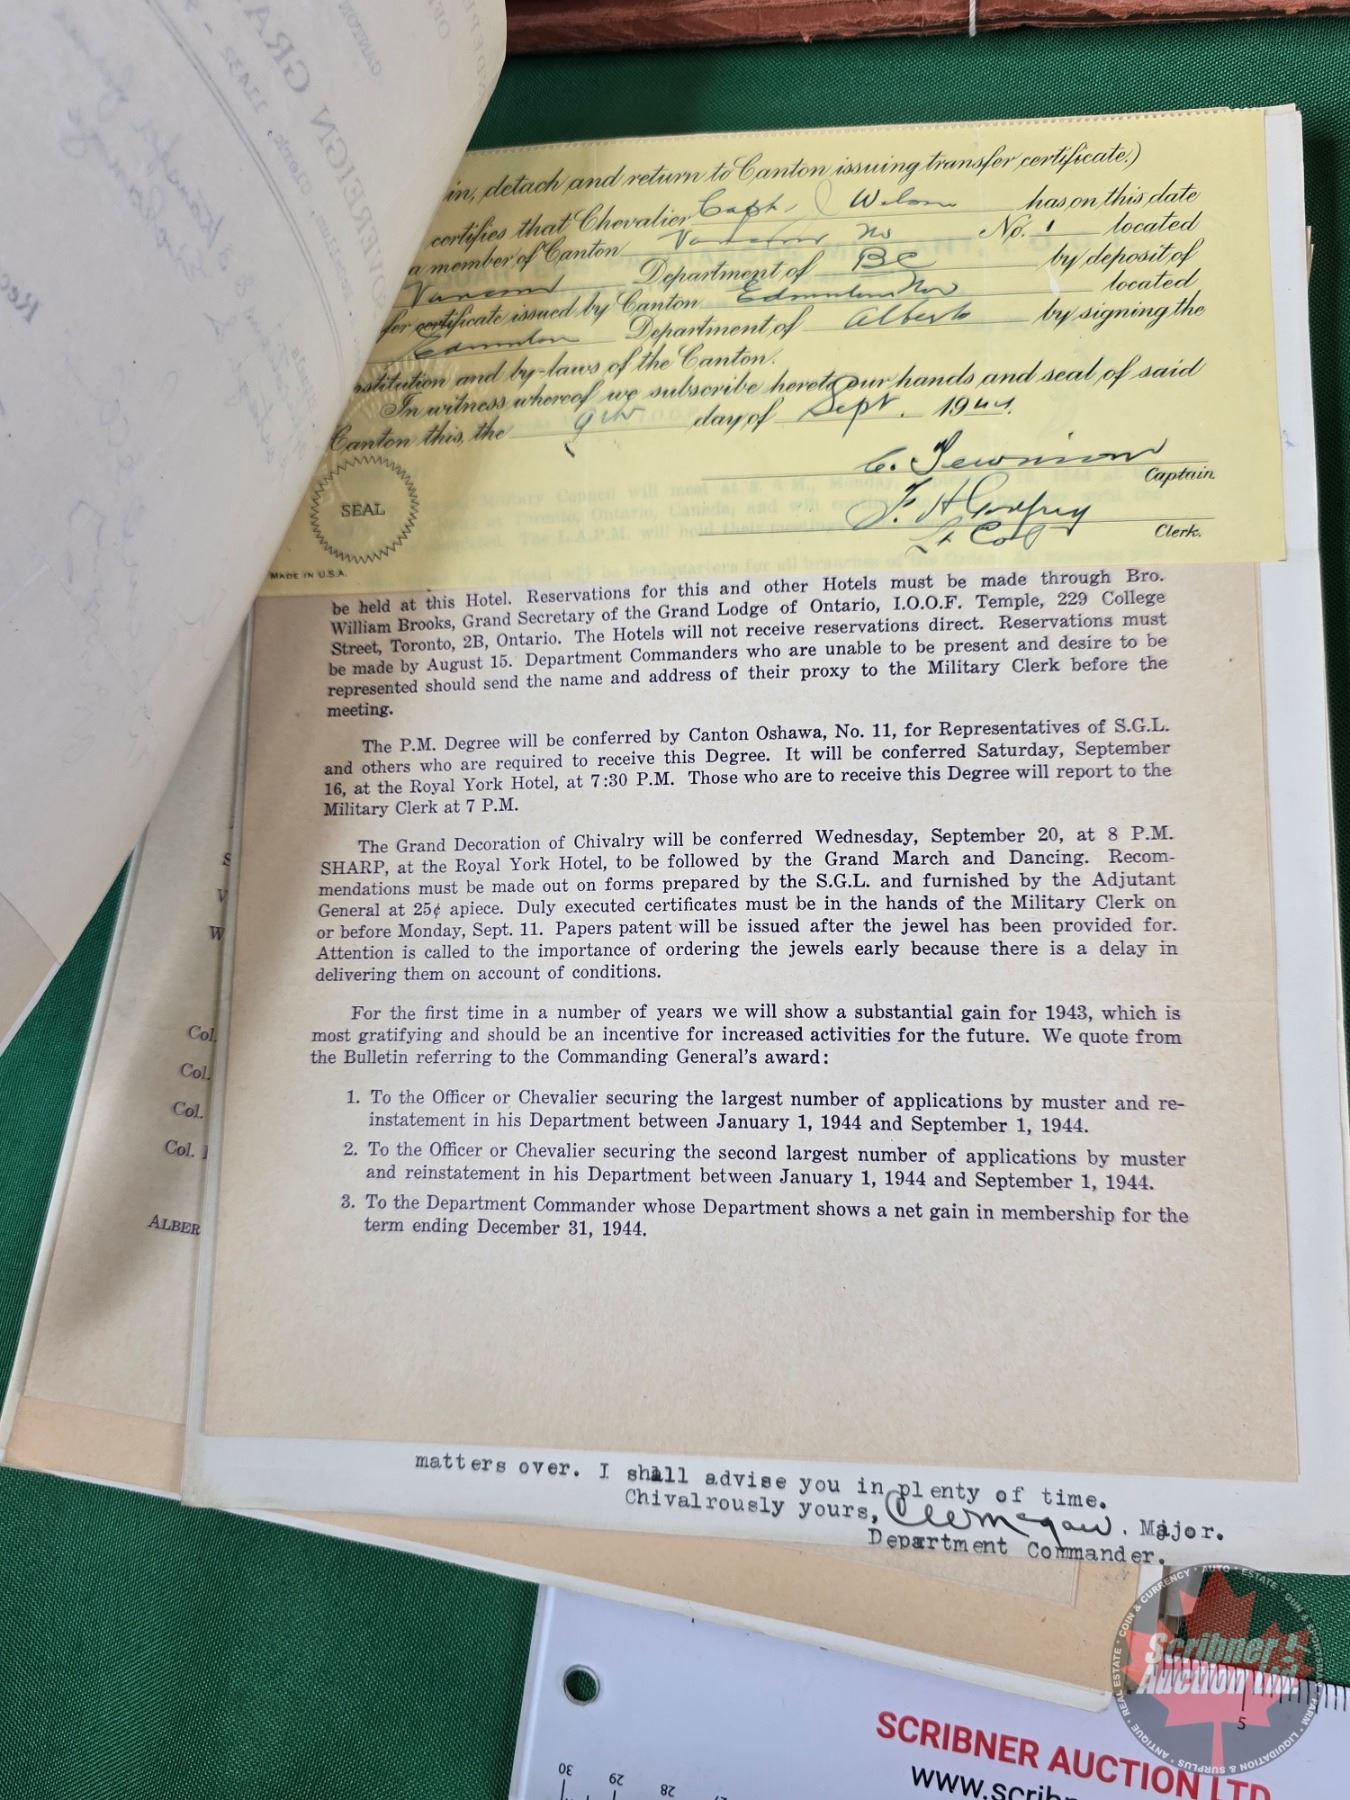 in, detach and return to Canton issuing transfer certificate.)
certifies that Chevalier Capt. Wilson has on this date
a member of Canton Vancouver No No. 1 located
Vancouver Department of BC by deposit of
fer certificate issued by Canton Edmonton No located
Edmonton Department of Alberta by signing the
nstitution and by-laws of the Canton.
In witness whereof we subscribe hereto our hands and seal of said
Canton this, the 9th day of Sept. 1944.
C.
Captain.
F. H Godfrey
Lt Col
Clerk.
SEAL
MADE IN U.S.A.
be held at this Hotel. Reservations for this and other Hotels must be made through Bro.
William Brooks, Grand Secretary of the Grand Lodge of Ontario, I.O.O.F. Temple, 229 College
Street, Toronto, 2B, Ontario. The Hotels will not receive reservations direct. Reservations must
be made by August 15. Department Commanders who are unable to be present and desire to be
represented should send the name and address of their proxy to the Military Clerk before the
meeting.
The P.M. Degree will be conferred by Canton Oshawa, No. 11, for Representatives of S.G.L.
and others who are required to receive this Degree. It will be conferred Saturday, September
16, at the Royal York Hotel, at 7:30 P.M. Those who are to receive this Degree will report to the
Military Clerk at 7 P.M.
The Grand Decoration of Chivalry will be conferred Wednesday, September 20, at 8 P.M.
SHARP, at the Royal York Hotel, to be followed by the Grand March and Dancing. Recom-
mendations must be made out on forms prepared by the S.G.L. and furnished by the Adjutant
General at 25¢ apiece. Duly executed certificates must be in the hands of the Military Clerk on
or before Monday, Sept. 11. Papers patent will be issued after the jewel has been provided for.
Attention is called to the importance of ordering the jewels early because there is a delay in
delivering them on account of conditions.
For the first time in a number of years we will show a substantial gain for 1943, which is
most gratifying and should be an incentive for increased activities for the future. We quote from
the Bulletin referring to the Commanding General's award:
1. To the Officer or Chevalier securing the largest number of applications by muster and re-
instatement in his Department between January 1, 1944 and September 1, 1944.
2. To the Officer or Chevalier securing the second largest number of applications by muster
and reinstatement in his Department between January 1, 1944 and September 1, 1944.
3. To the Department Commander whose Department shows a net gain in membership for the
term ending December 31, 1944.
Col.
Col.
Col.
Col.
ALBER
matters over. I shall advise you in plenty of time.
Chivalrously yours, Major.
Department Commander.
Scribner
Auction Ltd
REAL ESTATE • COIN & CURRENCY • AUTO • ESTATE • GUN & SPORTSMAN • FARM • LIQUIDATION & SURPLUS • ANTIQUE
5
SCRIBNER AUCTION LTD
www.scribn
30 29 28 27